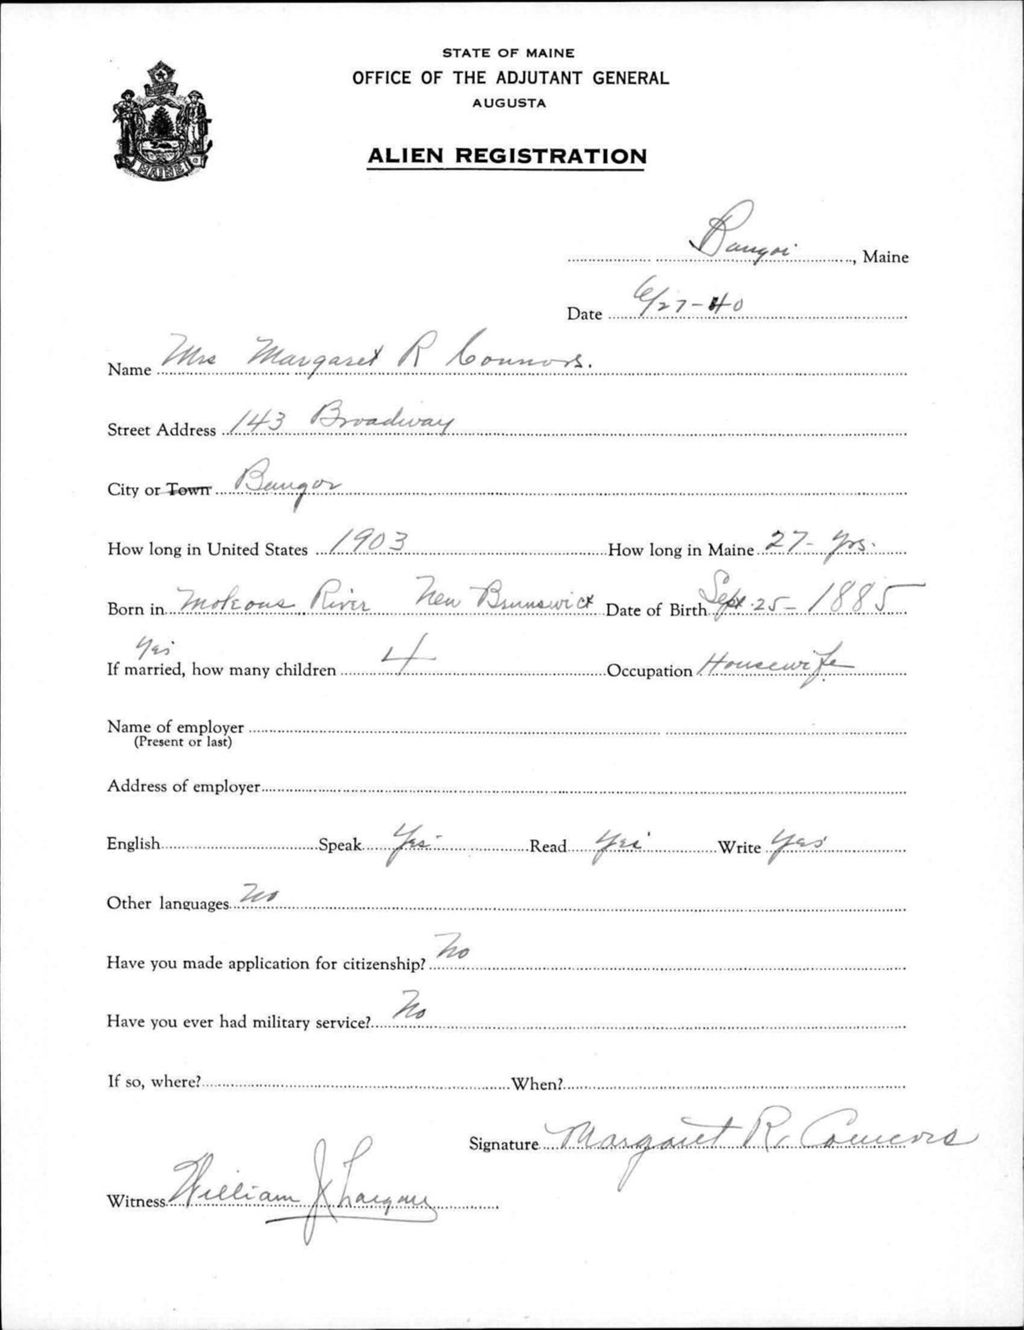 STATE OF MAINE
OFFICE OF THE ADJUTANT GENERAL
AUGUSTA
ALIEN REGISTRATION
MAINE
Bangor, Maine
Date 6/27-40
Name Mrs Margaret R Connors.
Street Address 143 Broadway
City or Town Bangor
How long in United States 1903 How long in Maine 27- yrs.
Born in River New Brunswick Date of Birth Sept. 25- 1885
Yes
If married, how many children 4 Occupation Housewife
Name of employer
(Present or last)
Address of employer
English Speak Yes Read Yes Write Yes
Other languages No
Have you made application for citizenship? No
Have you ever had military service? No
If so, where? When?
Signature Margaret R. Connors
Witness William J